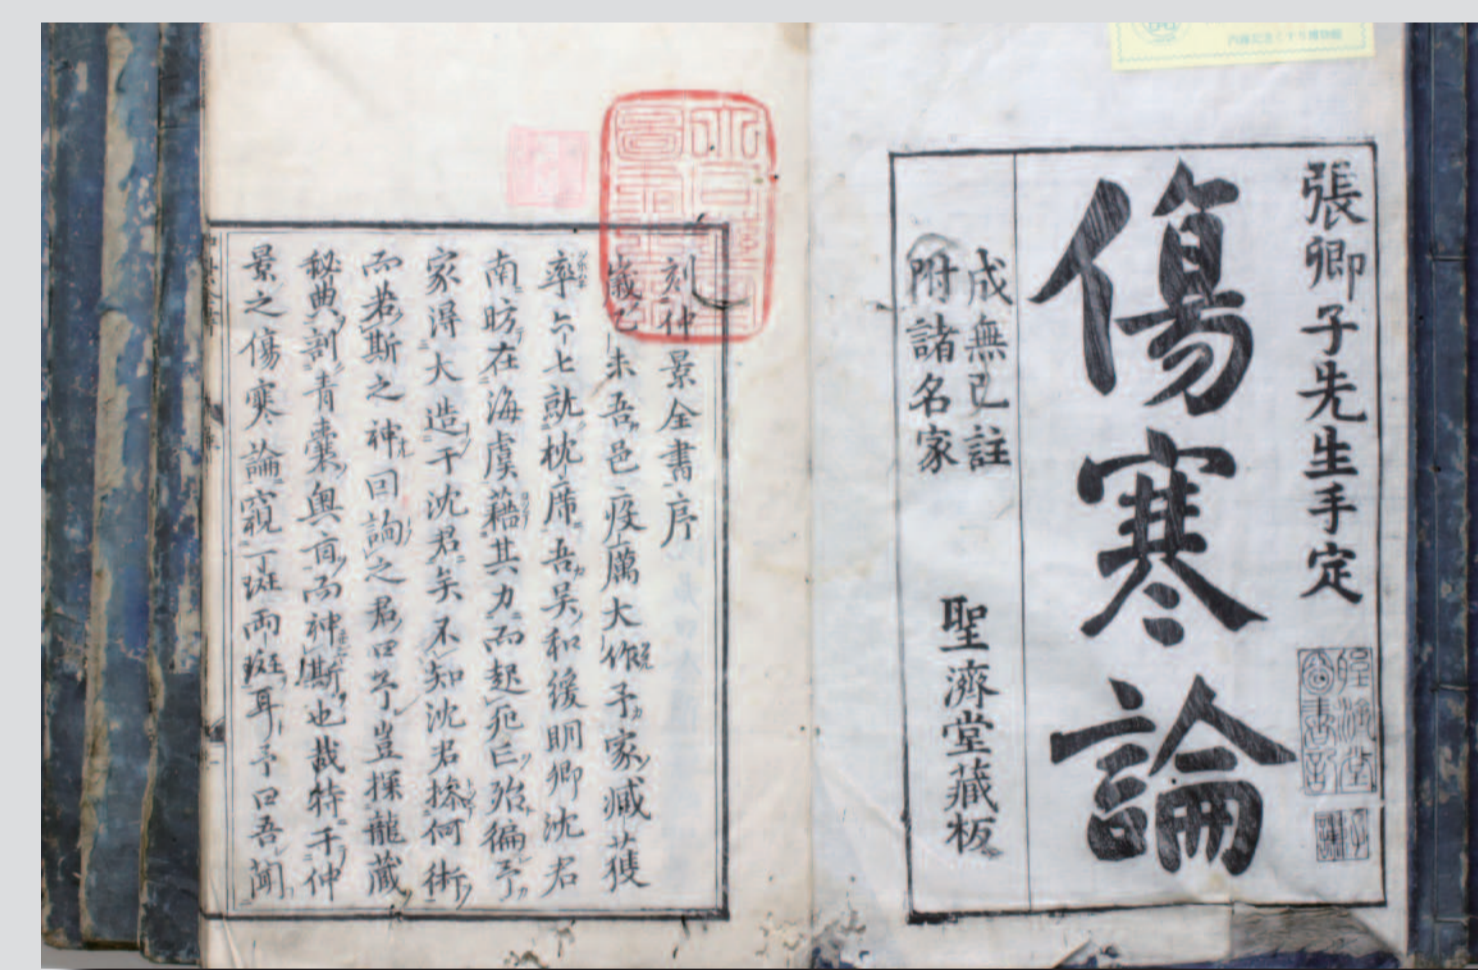 張卿子先生手定
傷寒論
成無已註
附諸名家
聖濟堂藏板
刻仲景全書序
歲己未吾邑疫厲大作予家臧獲
率六七就枕席吾吳和緩明卿沈君
南昉在海虞藉其力而起死亡殆徧予
家得大造于沈君矣不知沈君操何術
而若斯之神因詢之君曰予豈探龍藏
秘典剖青囊奧旨而神斯也哉特于仲
景之傷寒論窺一斑兩斑耳予曰吾聞
内藤記念くすり博物館